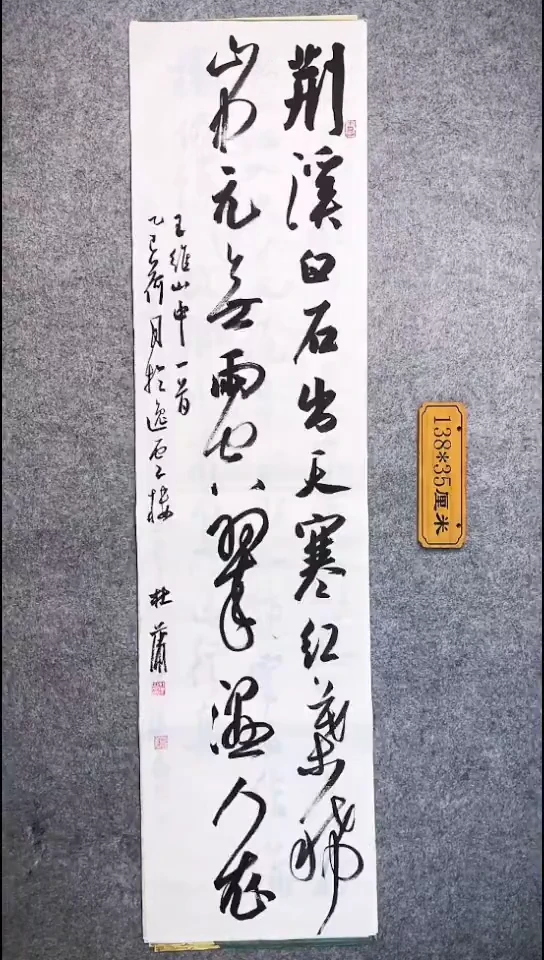 荆溪白石出天寒红叶稀
山路元无雨空翠湿人衣
王维山中一首
乙巳荷月于逸石楼
杜蒲
138*35厘米